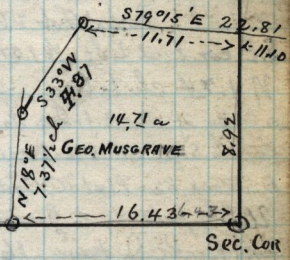 S79°15'E 22.81
11.71
11.10
S33°W
4.87
14.71 a
GEO. MUSGRAVE
8.92
N18°E
7.37½ ch
16.43
SEC. COR